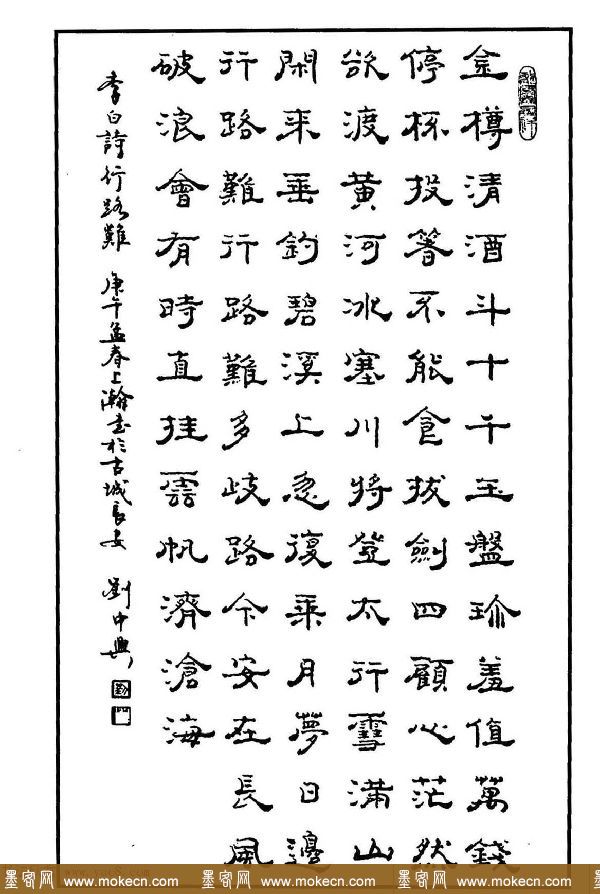 金樽清酒斗十千玉盤珍羞值萬錢
停杯投箸不能食拔劍四顧心茫然
欲渡黃河冰塞川將登太行雪滿山
閑来垂釣碧溪上忽復乘月夢日邊
行路難行路難多歧路今安在長風
破浪會有時直挂雲帆濟滄海
李白詩行路難 庚午孟春上瀚书於古城長安 劉中興
墨客网 www.mokecn.com 墨客网 www.mokecn.com 墨客网 www.mokecn.com